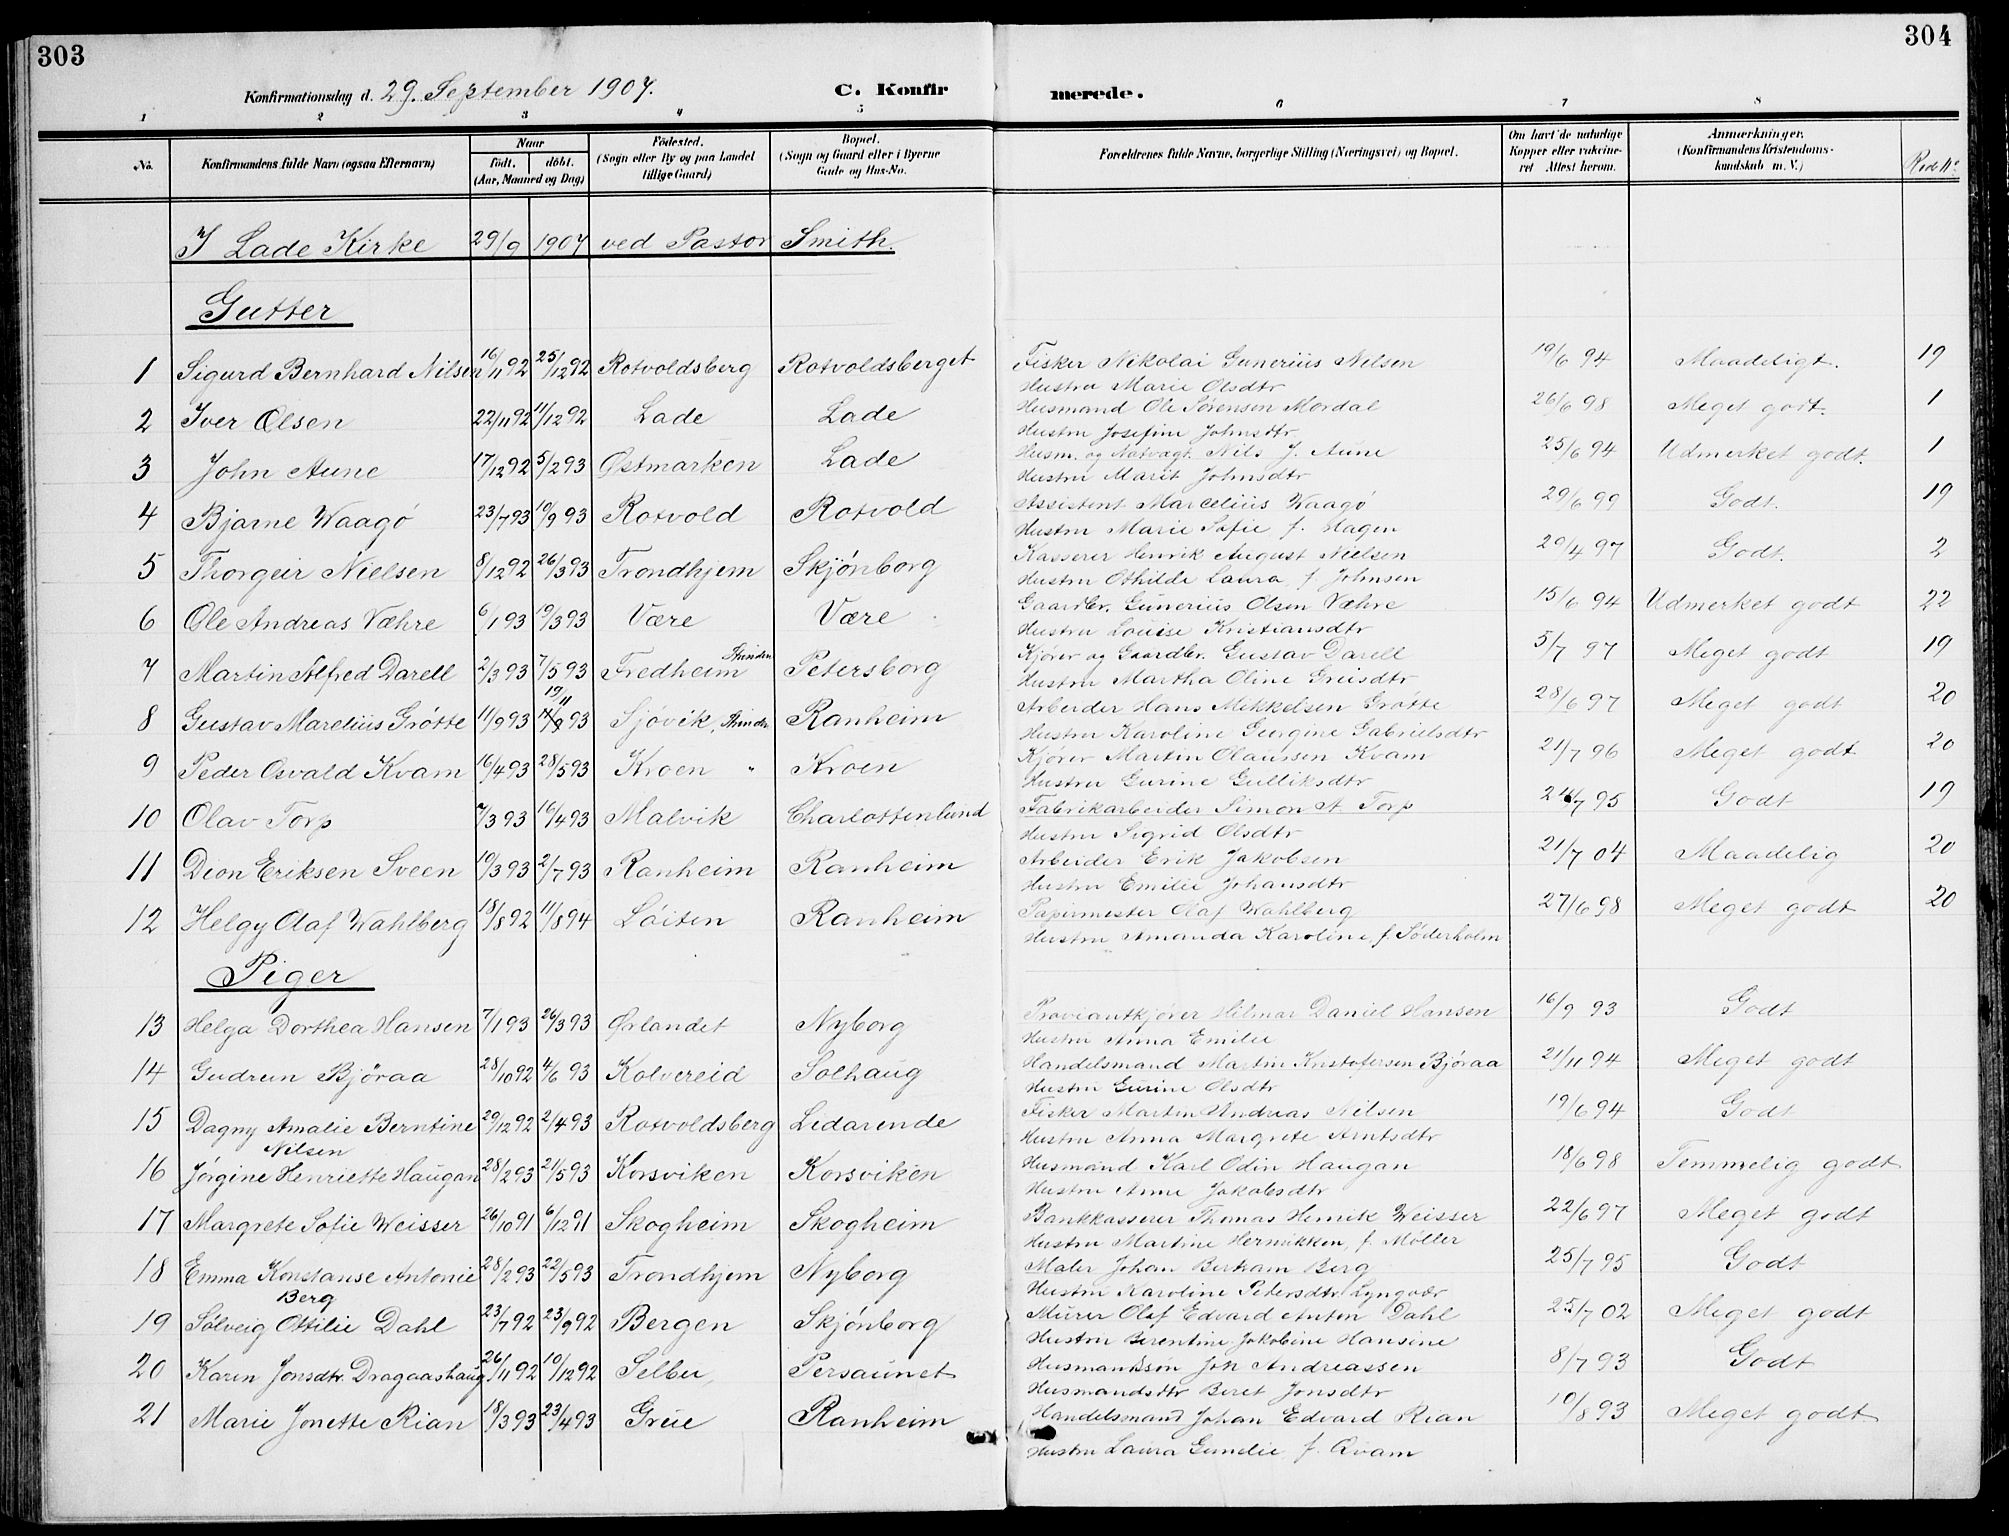 303
304
Konfirmationsdag d. 29. September 1907.
C. Konfir
merede.
1 2 3 4 5 6 7 8
No. Konfirmandens fulde Navn (ogsaa Efternavn) Naar født. døbt. (Aar, Maaned og Dag) Fødested. (Sogn eller By og paa Landet tillige Gaard) Bopæl. (Sogn og Gaard eller i Byerne Gade og Hus-No. Forældrenes fulde Navne, borgerlige Stilling (Næringsvei) og Bopæl. Om havt de naturlige Kopper eller vakcineret Attest herom. Anmærkninger. (Konfirmandens Kristendomskundskab m. V.)
I Lade Kirke 29/9 1907 ved Pastor Smith.
Gutter
1 Sigurd Bernhard Nilsen 16/11 92 25/12 92 Rotvoldsberg Rotvoldsberget Fisker Nikolai Gunerius Nelsen 19/6 94 Maadeligt. 19
Hustru Marie Olsdtr
2 Iver Olsen 22/11 92 11/12 92 Lade Lade Husmand Ole Sørensen Mordal 26/6 98 Meget godt. 1
Hustru Josefine Johnsdtr.
3 John Aune 17/12 92 5/2 93 Østmarken Lade Husm. og Natvægt. Nils J. Aune 25/6 94 Udmerket godt. 1
Hustru Marit Johnsdtr
4 Bjarne Waagø 23/7 93 10/9 93 Rotvold Rotvold Assistent Marcelius Waagø 29/6 99 Godt. 19
Hustru Marie Sofie f. Hagen
5 Thorgeir Nielsen 8/12 92 26/3 93 Trondhjem Skjønborg Kasserer Henrik August Nielsen 29/4 97 Godt. 2
Hustru Othilde Laura, f. Johnsen
6 Ole Andreas Væhre 6/1 93 19/3 93 Være Være Gaardbr. Gunerius Olsen Væhre 15/6 94 Udmerket godt 22
Hustru Louise Kristiansdtr
7 Martin Alfred Darell 2/3 93 7/5 93 Fredheim Strinden Petersborg Kjører og Gaardbr. Gustav Darell 5/7 97 Meget godt 19
Hustru Martha Oline Greisdtr
8 Gustav Marelius Grøtte 11/9 93 19/11 93 Sjøvik, Strinden Ranheim Arbeider Hans Mikkelsen Grøtte 28/6 97 Meget godt 20
Hustru Karoline Georgine Gabrielsdtr
9 Peder Osvald Kvam 16/4 93 28/5 93 Kroen " Kroen Kjører Martin Olaussen Kvam 21/7 96 Meget godt 20
Hustru Gurine Gulliksdtr
10 Olav Torp 7/3 93 16/4 93 Malvik Charlottenlund Fabrikarbeider Simon A. Torp 24/7 95 Godt 19
Hustru Sigrid Olsdtr
11 Dion Eriksen Sveen 10/3 93 2/7 93 Ranheim Ranheim Arbeider Erik Jakobsen 21/7 04 Maadelig 20
Hustru Emilie Johansdtr
12 Helgy Olaf Wahlberg 18/8 92 11/8 94 Løiten Ranheim Papirmester Olaf Wahlberg 27/6 98 Meget godt 20
Hustru Amanda Karoline, f. Söderholm
Piger
13 Helga Dorthea Hansen 7/1 93 26/3 93 Ørlandet Nyborg Proviantkjører Hilmar Daniel Hansen 16/9 93 Godt
Hustru Anna Emilie
14 Gudrun Bjøraa 28/10 92 4/6 93 Kolvereid Solhaug Handelsmand Martin Kristofersen Bjøraa 21/11 94 Meget godt
Hustru Gurine Olsdtr
15 Dagny Amalie Berntine 29/12 92 2/4 93 Rotvoldsberg Ledarende Fisker Martin Andreas Nilsen 19/6 94 Godt
Nilsen Hustru Anna Margrete Arntsdtr
16 Jørgine Henriette Haugan 28/2 93 21/5 93 Korsviken Korsviken Husmand Karl Odin Haugan 18/6 98 Temmelig godt
Hustru Anne Jakobsdtr
17 Margrete Sofie Weisser 26/10 91 6/12 91 Skogheim Skogheim Bankkasserer Thomas Henrik Weisser 22/6 97 Meget godt
Hustru Martine Hernikken, f. Møller
18 Emma Konstanse Antonie 28/2 93 22/5 93 Trondhjem Nyborg Maler Johan Bertram Berg 25/7 95 Godt
Berg Hustru Karoline Petersdtr Lyngvær
19 Sólveig Ottilie Dahl 23/7 92 23/9 92 Bergen Skjønborg Murer Olaf Edvard Anton Dahl 25/7 02 Meget godt
Hustru Berentine Jakobine Hansine
20 Karen Jonsdtr. Dragaashaug 26/11 92 10/12 92 Selbu Persaunet Husmandssøn Jon Andreassen 8/7 93 Godt
Husmandsdtr Beret Jonsdtr
21 Marie Jonette Rian 18/3 93 23/4 93 Grue Ranheim Handelsmand Johan Edvard Rian 10/8 93 Meget godt
Hustru Laura Gundie f. Qvam